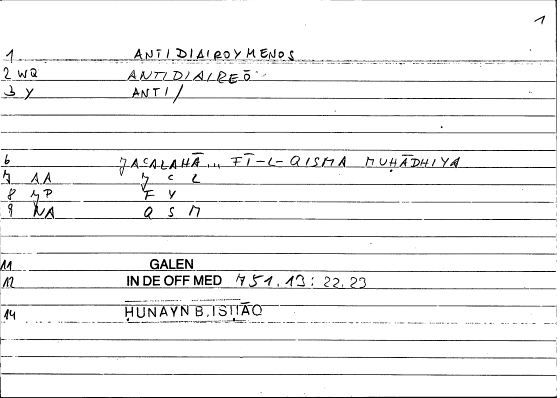 1
1 ANTIDIAIROYMENOS
2 WQ ANTIDIAIREŌ
3 Y ANTI/
6 ȷACALAHĀ... FĪ-L-QISMA MUḤĀDHIYA
7 AA ȷ C L
8 ȷP F Y
9 NA Q S M
11 GALEN
12 IN DE OFF MED 751.13: 22.23
14 ḤUNAYN B. ISḤĀQ